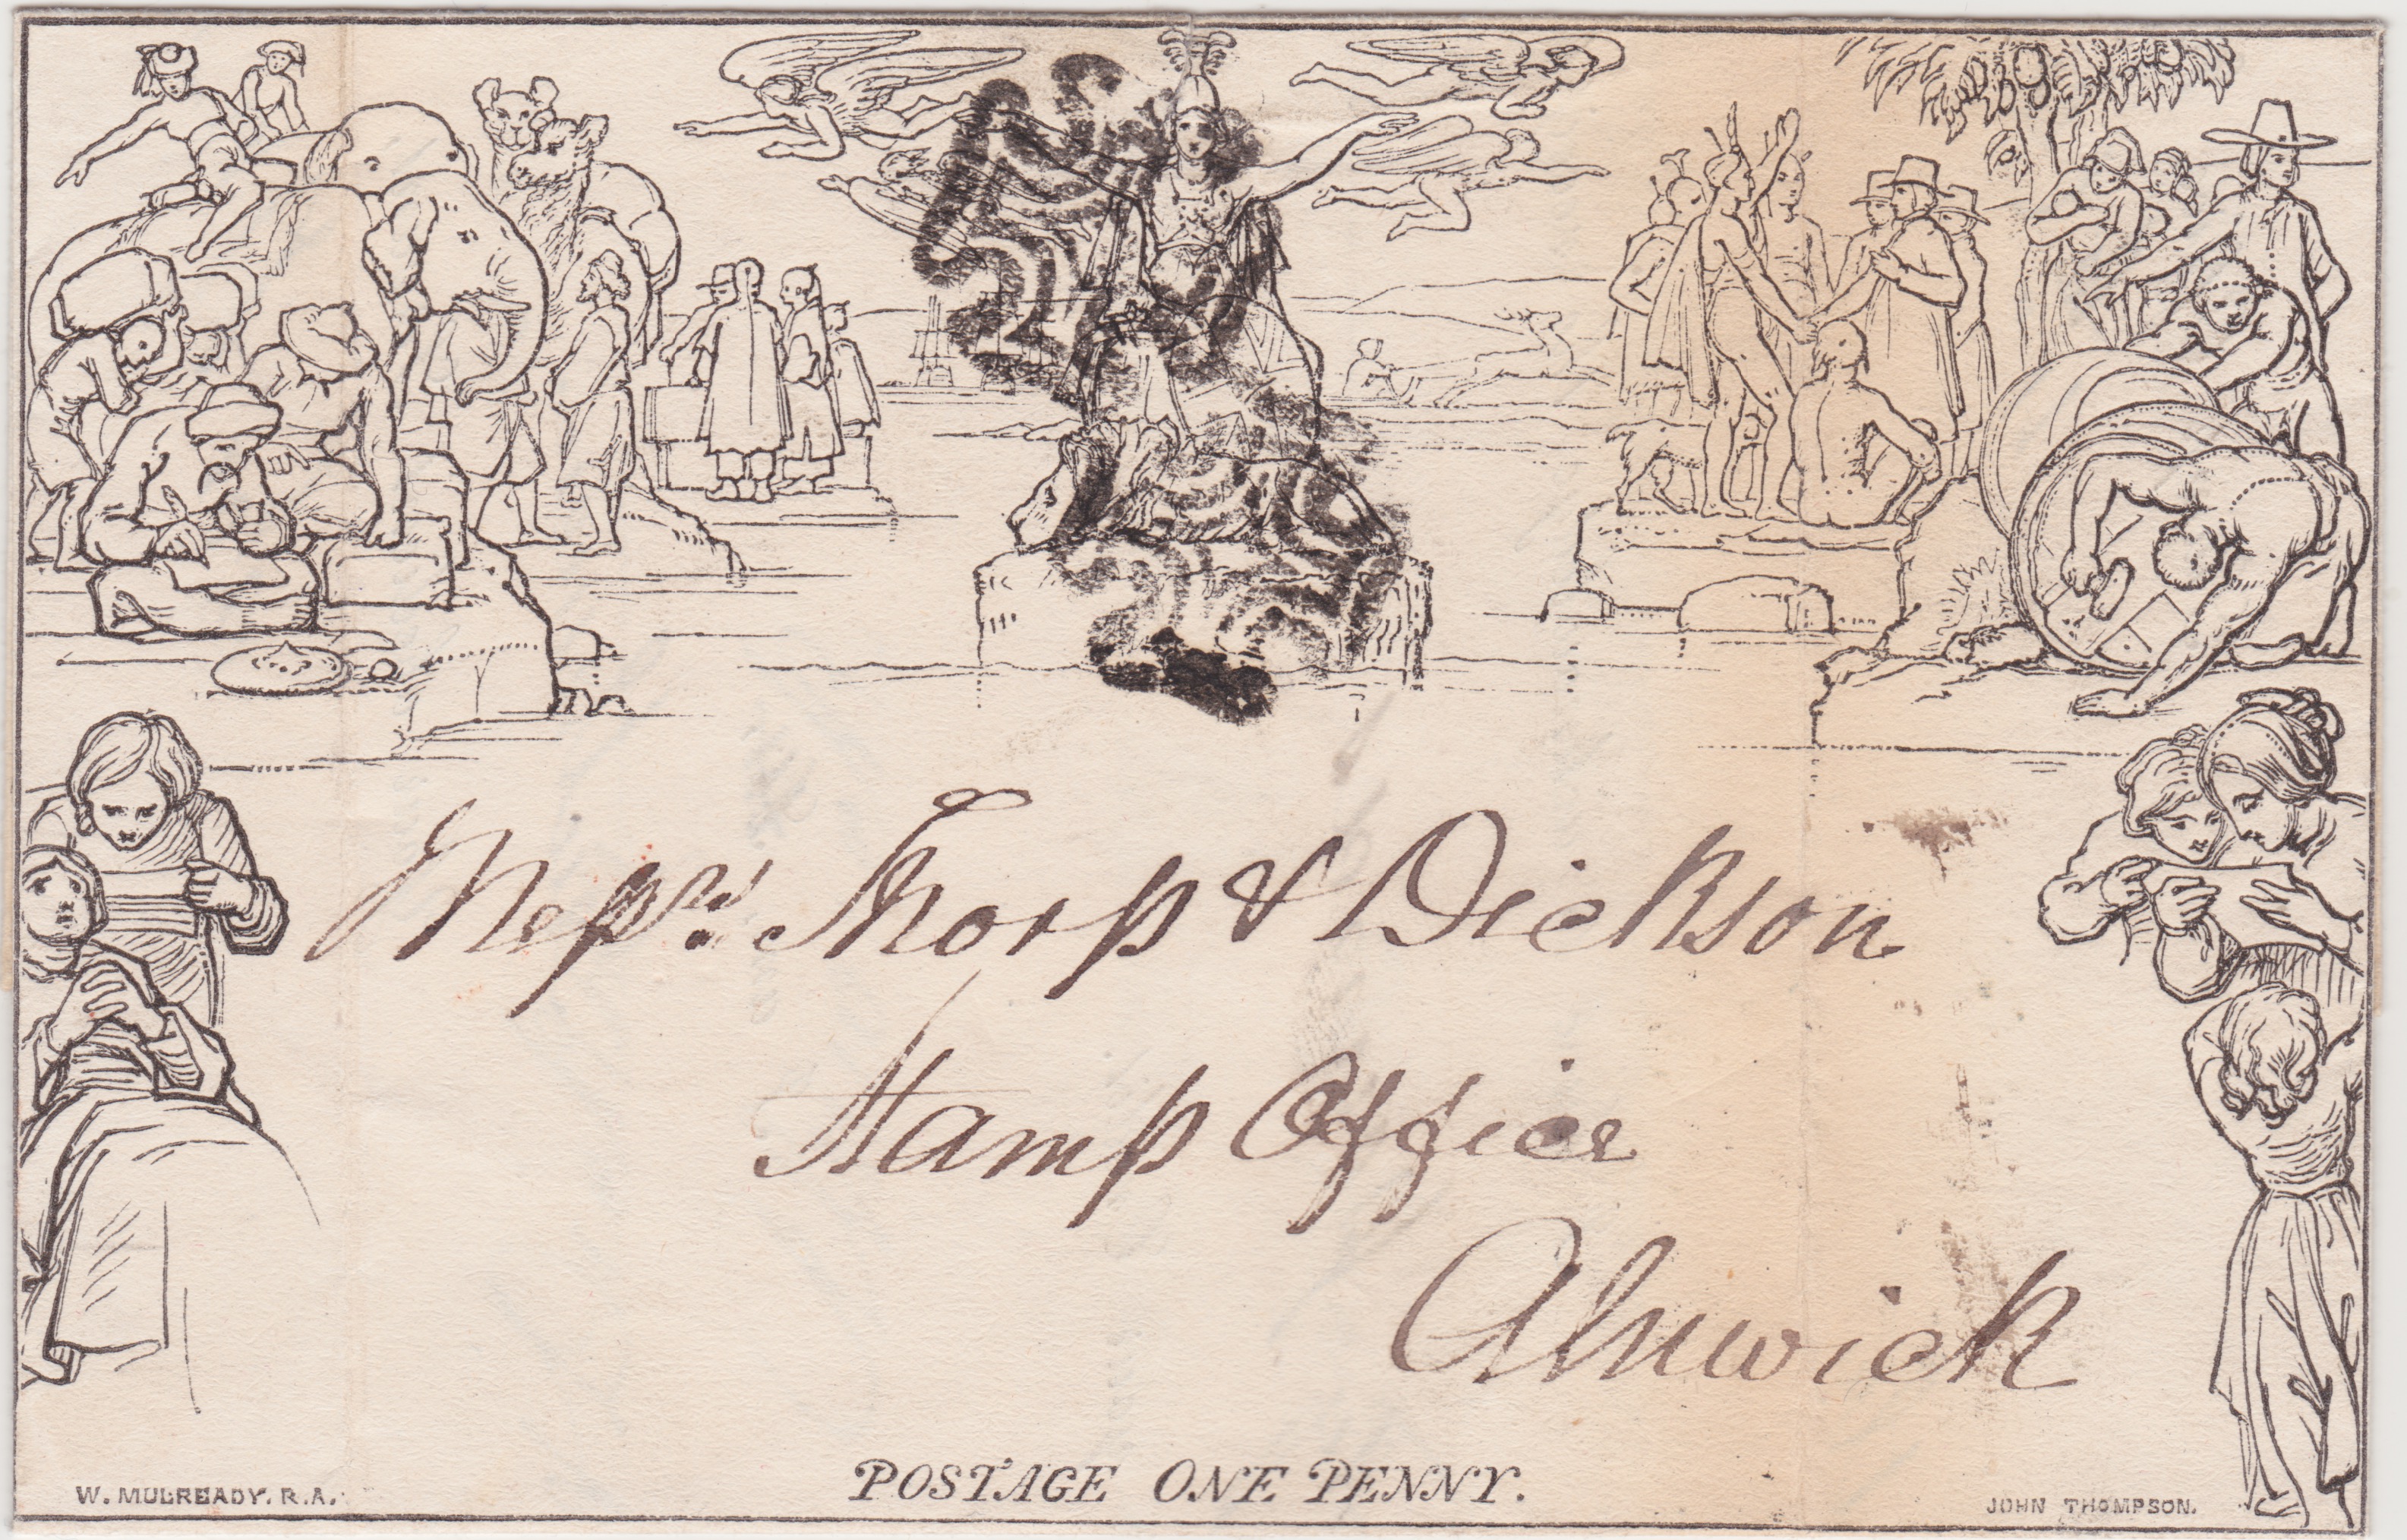 Messrs. Thorp & Dickson
Stamp Office
Alnwick
POSTAGE ONE PENNY.
W. MULREADY. R.A.
JOHN THOMPSON.